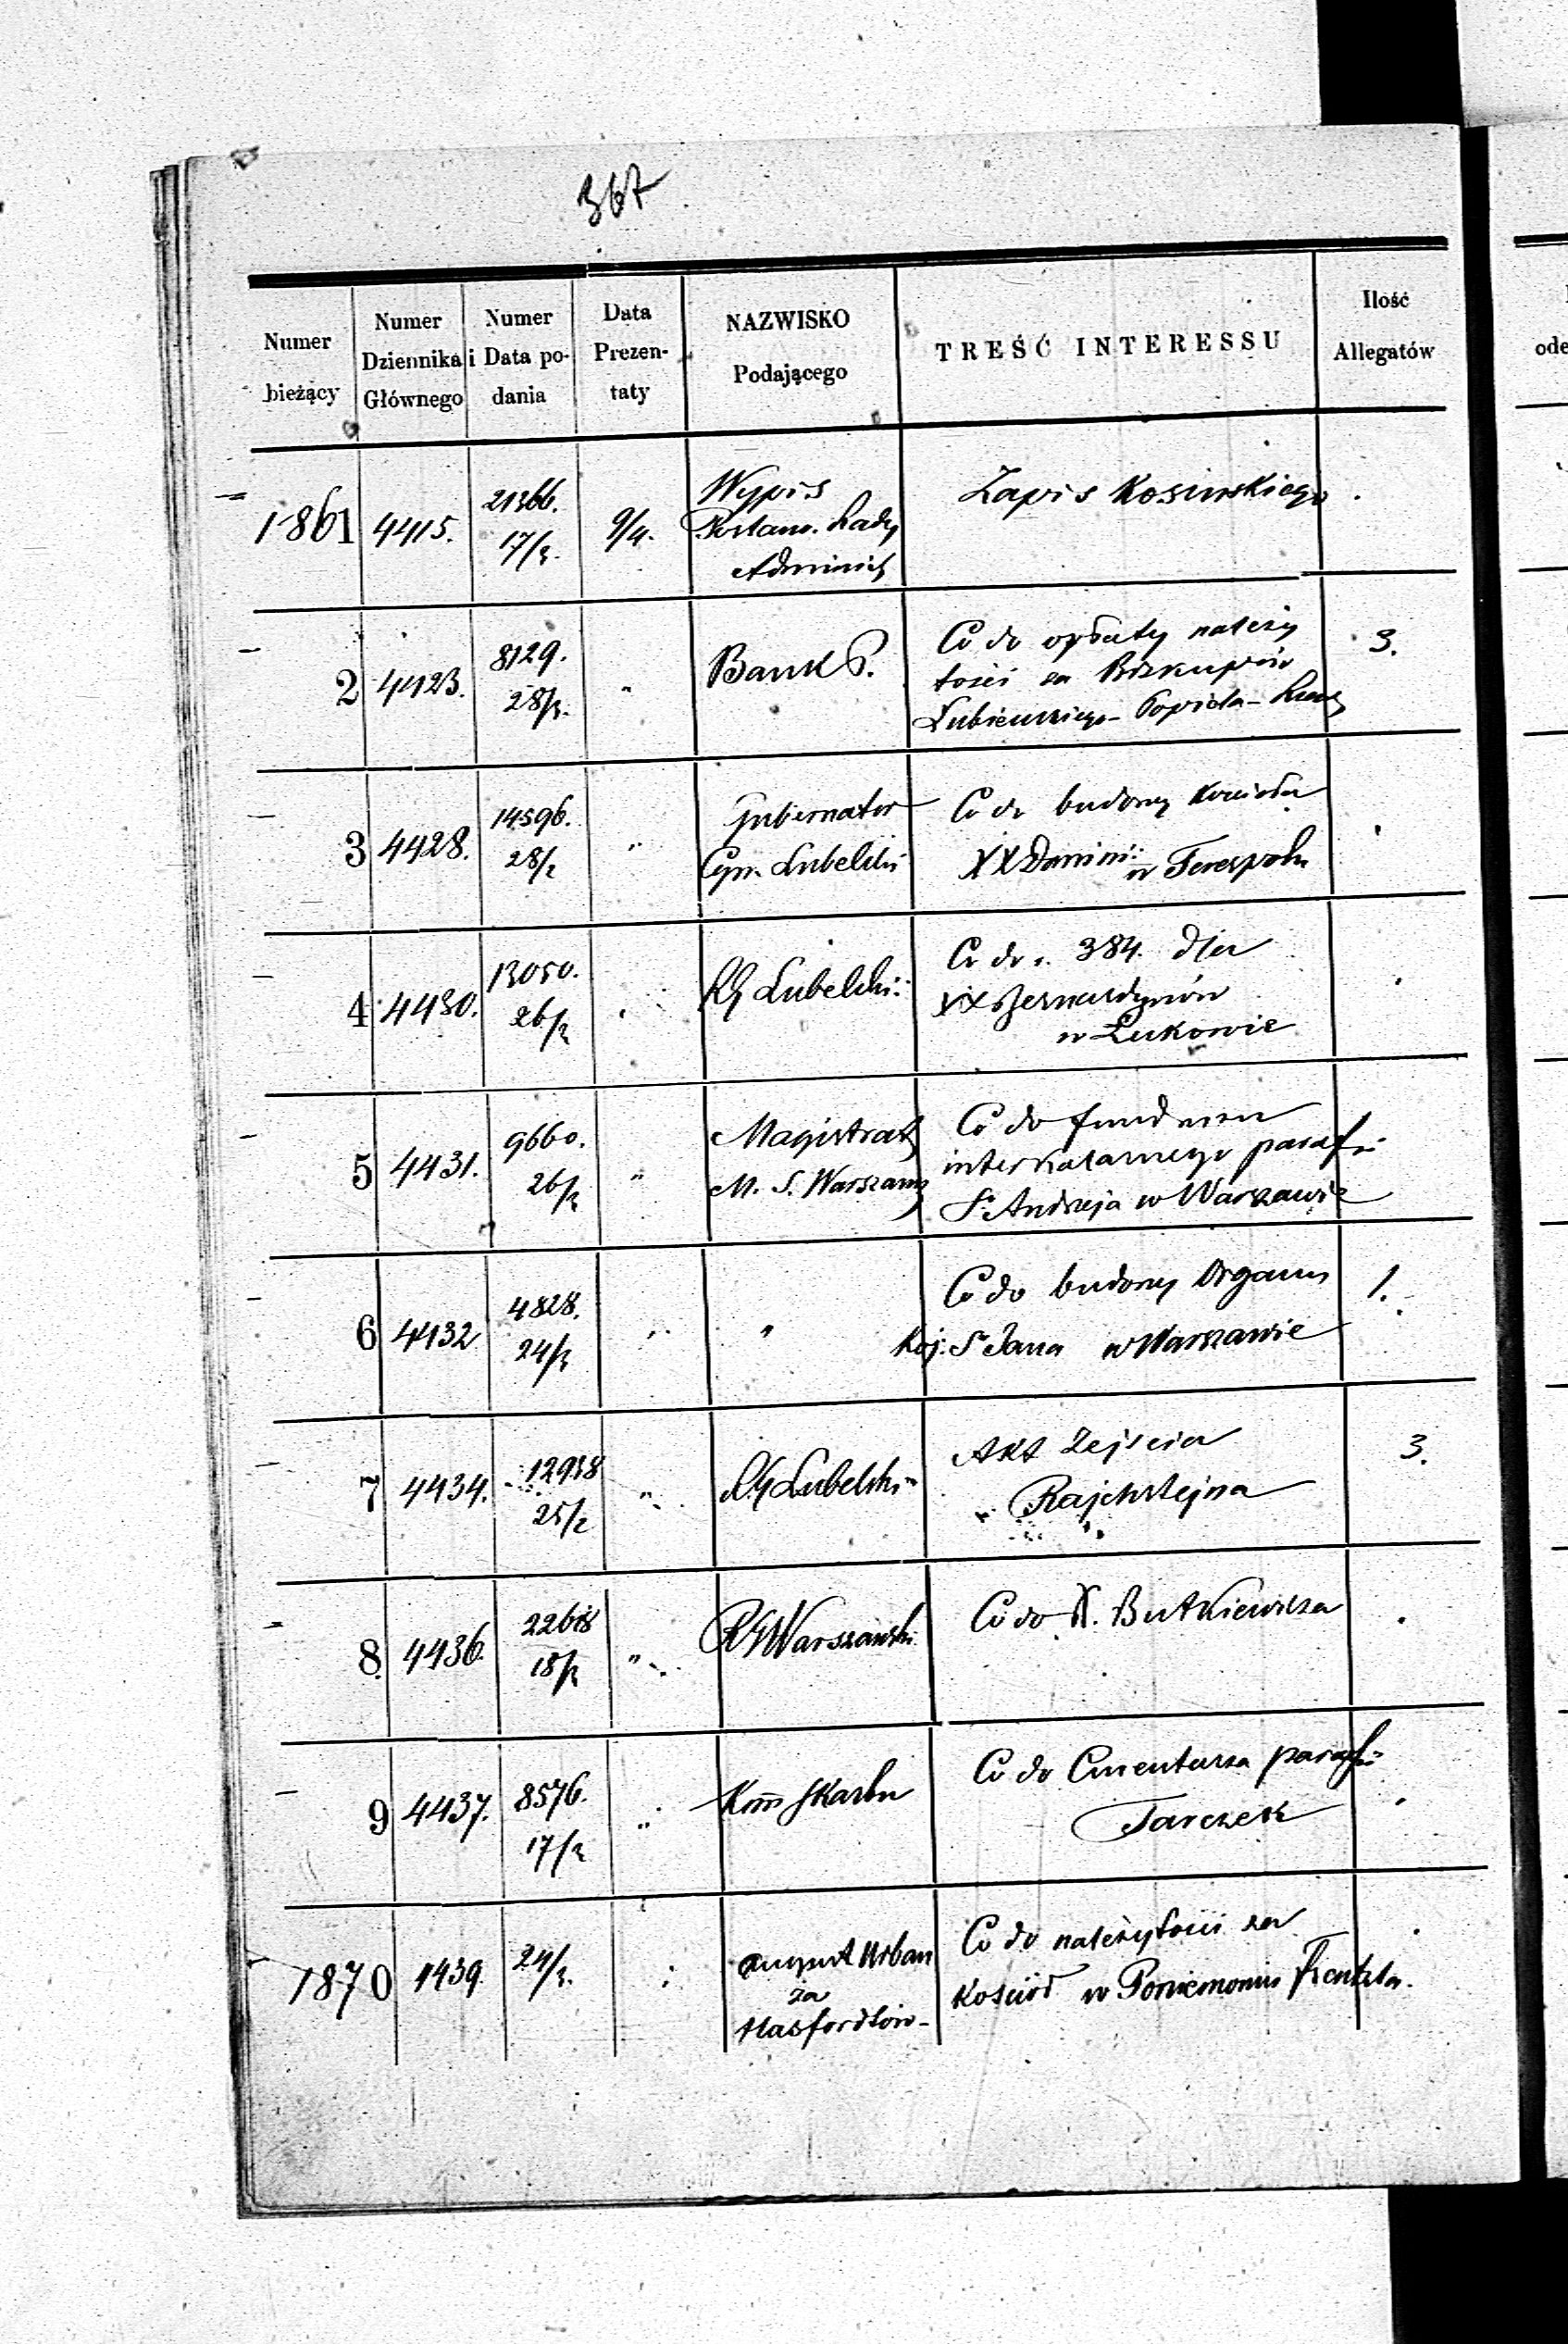 367
Numer bieżący
Numer Dziennika Głównego
Numer i Data podania
Data Prezentaty
NAZWISKO Podającego
TREŚĆ INTERESSU
Ilość Allegatów
1861 4415. 21366. 9/4. Wypis Zapis Kosinskiego
17/3. Postano. Rady
Adminis
2 4423. 8129. " Bank P. Co do opłaty należy 3.
28/3. tości za Biskupów
Łubieńskiego
3 4428. 14596. " Gubernator Co do budowy Kościoła
28/2 Cyw. Lubelski XX Domini: w Terespolu
4 4430. 13050. RG Lubelski: Co do r. 384. dla
26/3 XX Bernardynów
w Łukowie
5 4431. 9660. " Magistrat Co do funduszu 1.
26/3 M. S. Warszawy interkalarnego parafii
Sº Andrzeja w Warszawie
6 4432 4828. " " Co do budowy Organu 1.
24/3 Koś. Sº Jana w Warszawie
7 4434. 12938 " RG Lubelski Akt Zejścia 3.
25/2 Rajchstejna
8 4436. " RG Warszawski Co do X. Butkiewicza
18/3
9 4437. 8576. " Kom Skarbu Co do Cmentarza parafii
17/3 Tarczek
1870 4439. 24/3. August Urban Co do należytości za
za Kościół w Poniemoniu Frentzla.
Hasfordów